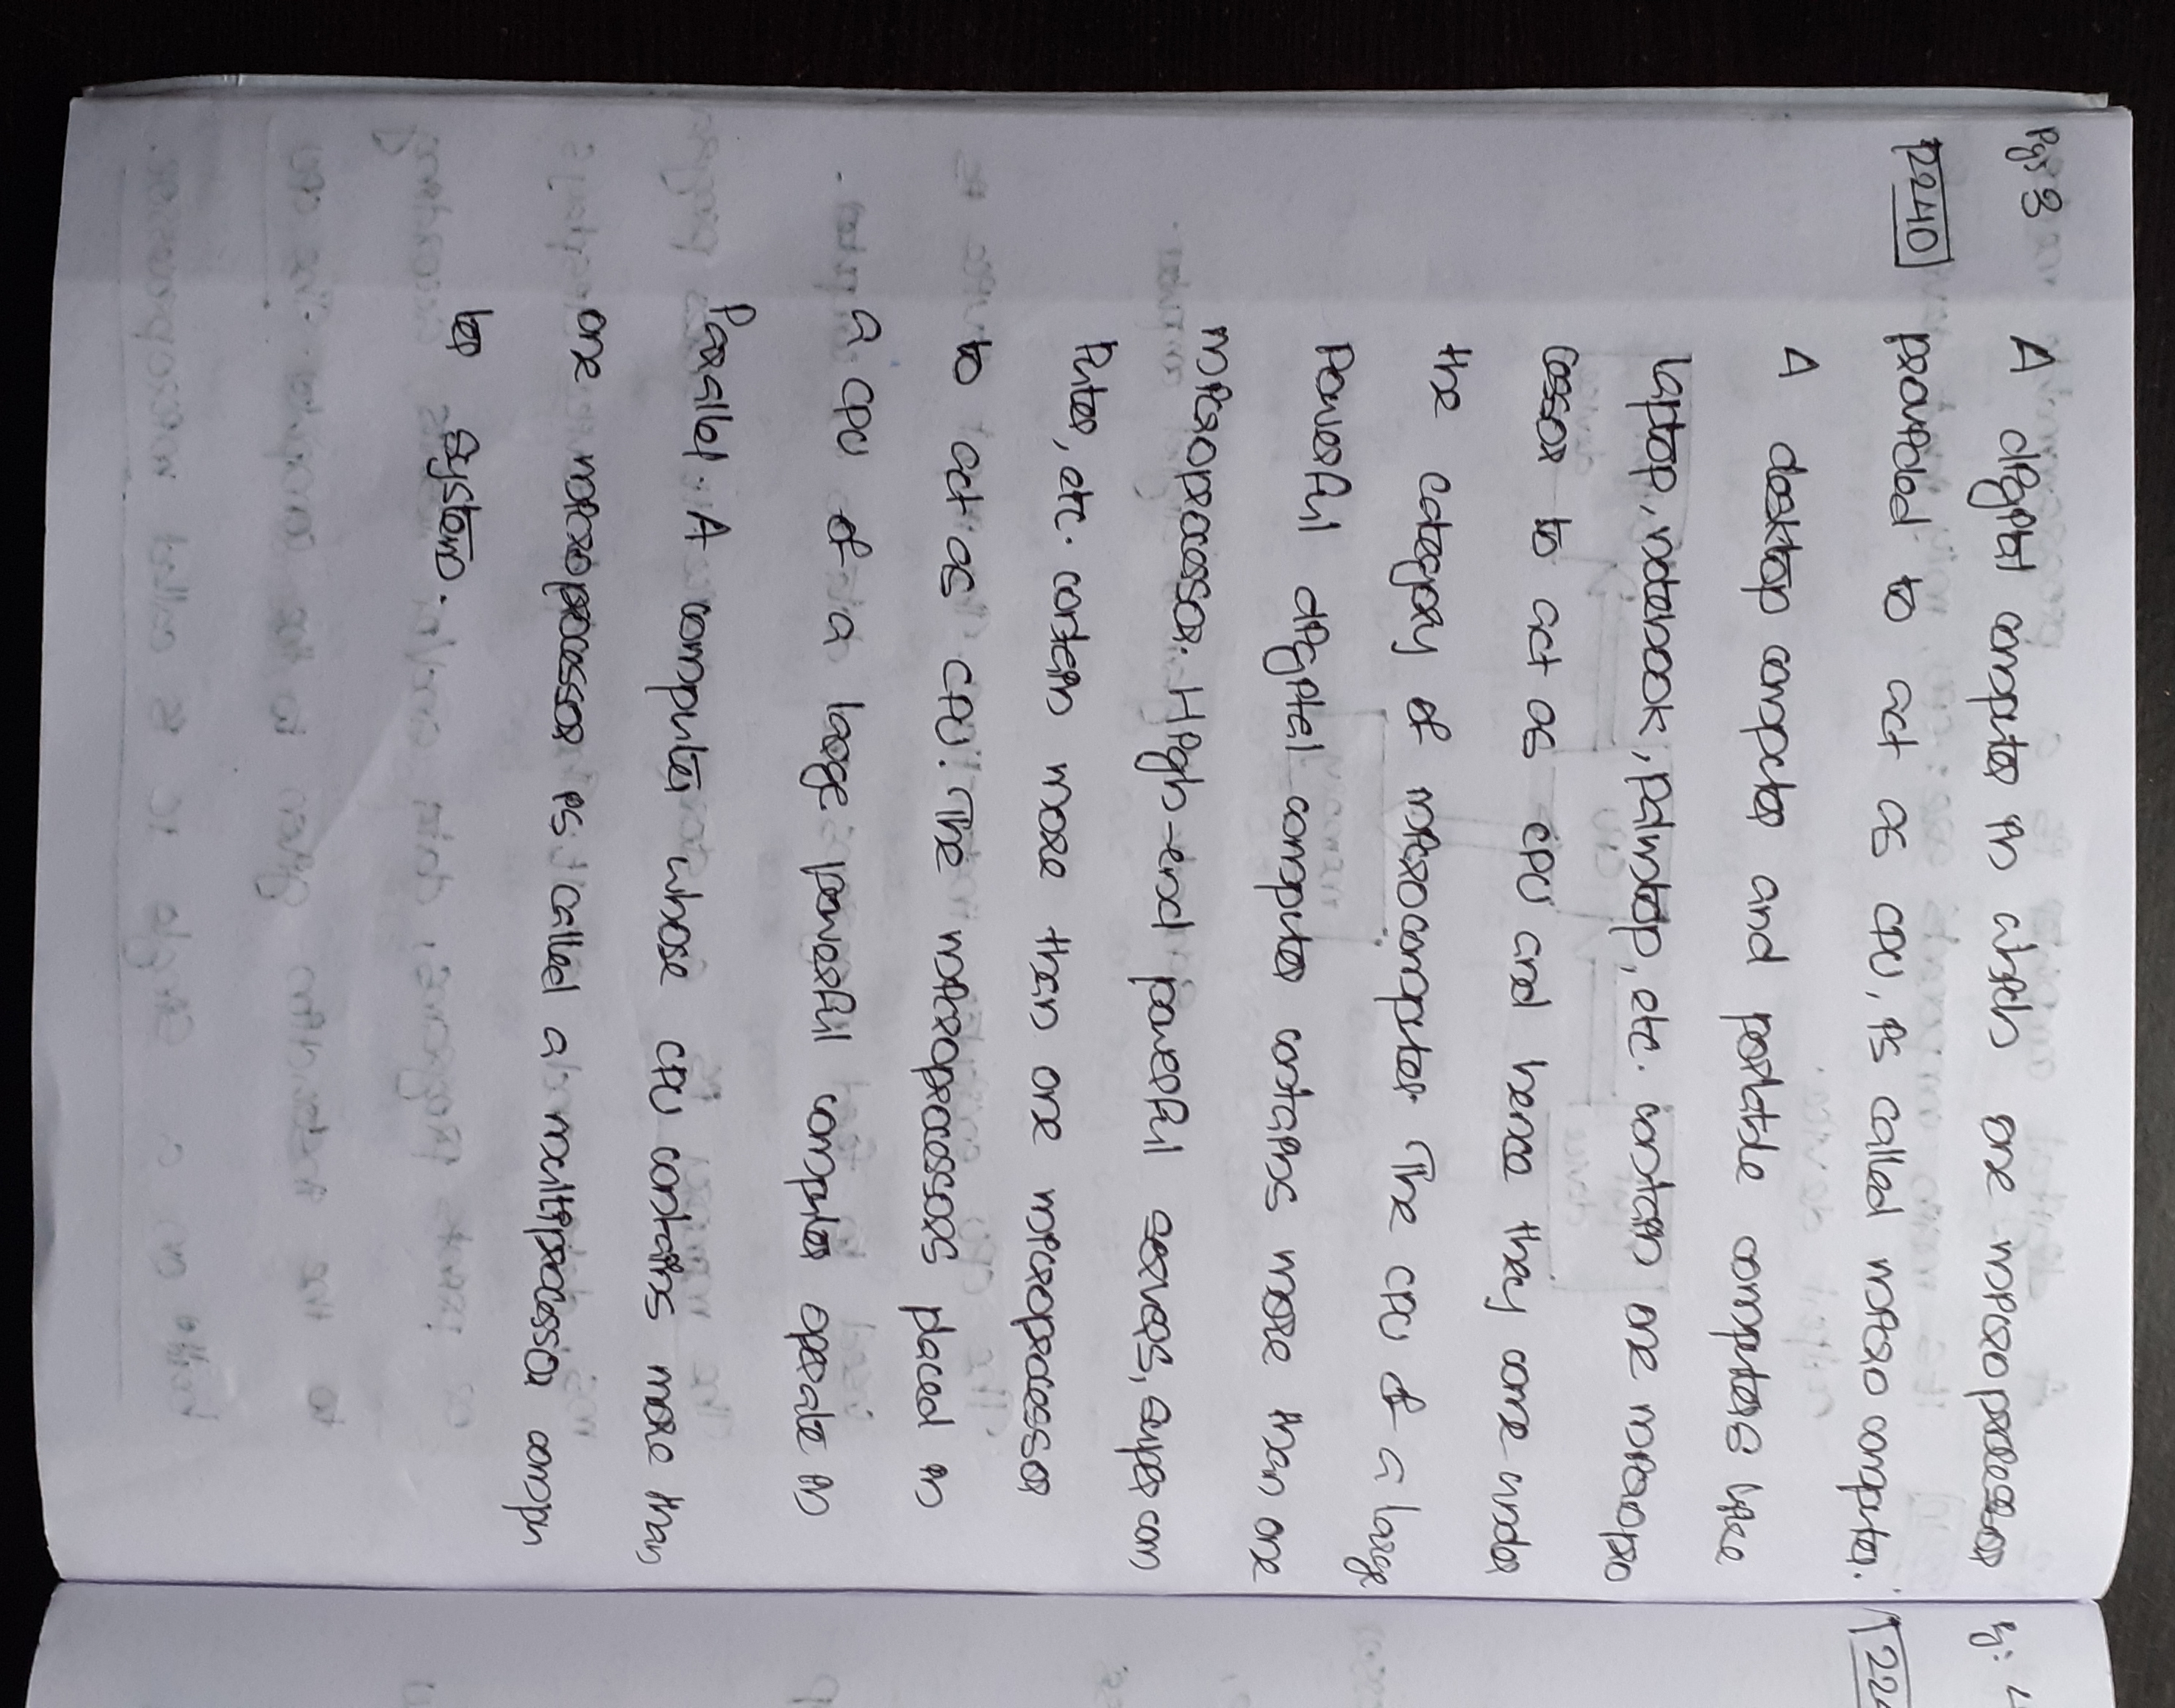 Pg: 3
2240
A digital computer in which one microprocessor
provided to act as CPU, is called micro computer.
A desktop computer and portable computers like
laptop, notebook, palmtop, etc. contain one micropro
cessor to act as CPU and hence they come under
the category of microcomputer. The CPU of a large
powerful digital computer contains more than one
microprocessor. High-end powerful servers, super com
puter, etc. contain more than one microprocessor
to act as CPU. The microprocessors placed in
a CPU of a large powerful computer operate in
Parallel. A computer whose CPU contains more than
one microprocessor is called a multiprocessor compu
ter system.